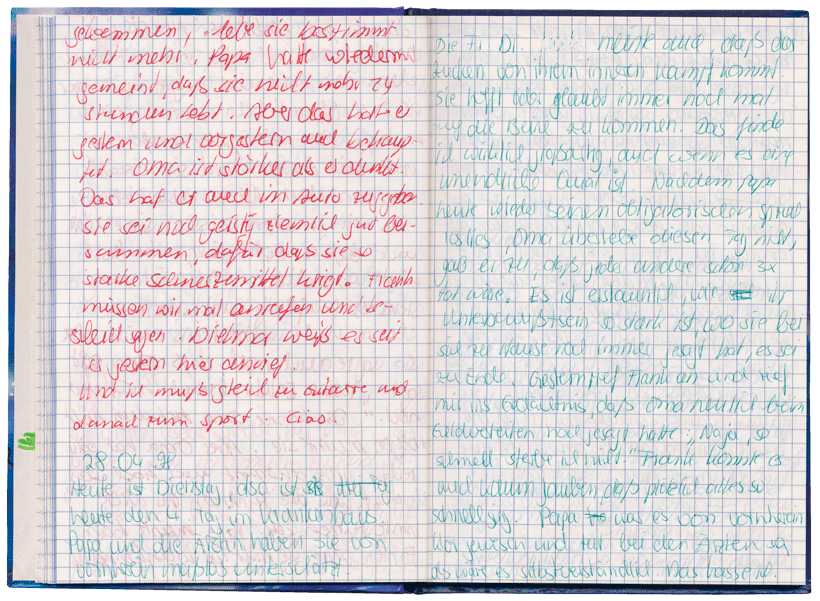 schwemmen, lebe sie bestimmt
nicht mehr. Papa hatte wiedermal
gemeint, daß sie nicht mehr 24
Stunden lebt. Aber das hatte er
gestern und vorgestern auch behaup-
tet. Oma ist stärker als er denkt.
Das hat er auch im Auto zugegeben
sie sei noch geistig ziemlich gut bei-
sammen, dafür daß sie so
starke Schmerzmittel kriegt. Frank
müssen wir mal anrufen und Be-
scheid sagen. Dietmar weiß es seit
er gestern hier anrief.
Und ich muß gleich zu Gitarre und
danach zum Sport. Ciao.
28.04.98
Heute ist Dienstag, also ist
heute den 4 Tag im Krankenhaus.
Papa und die Ärztin haben sie von
vornherein maßlos unterschätzt.
Die Fr. Dr. meinte auch, daß das
Zucken von ihrem inneren Kampf kommt.
Sie hofft oder glaubt immer noch mal
auf die Beine zu kommen. Das finde
ich wirklich großartig, auch wenn es eine
unendliche Qual ist. Nachdem Papa
heute wieder seinen obligatorischen Spruch
losließ, Oma überlebe diesen Tag nicht,
gab er zu, daß jeder andere schon 3x
tot wäre. Es ist erstaunlich, wie ihr
Unterbewußtsein so stark ist, wo sie bei
sich zu Hause noch immer gesagt hat, es sei
zu Ende. Gestern rief Frank an und rief
mir ins Gedächtnis, daß Oma neulich beim
Geldverteilen noch gesagt hatte: "Naja, so
schnell sterbe ich nicht." Frank konnte es
auch kaum glauben, daß plötzlich alles so
schnell ging. Papa was es von vornherein
klar gewesen und tut bei den Ärzten so,
als wäre es selbstverständlich. Das hasse ich.